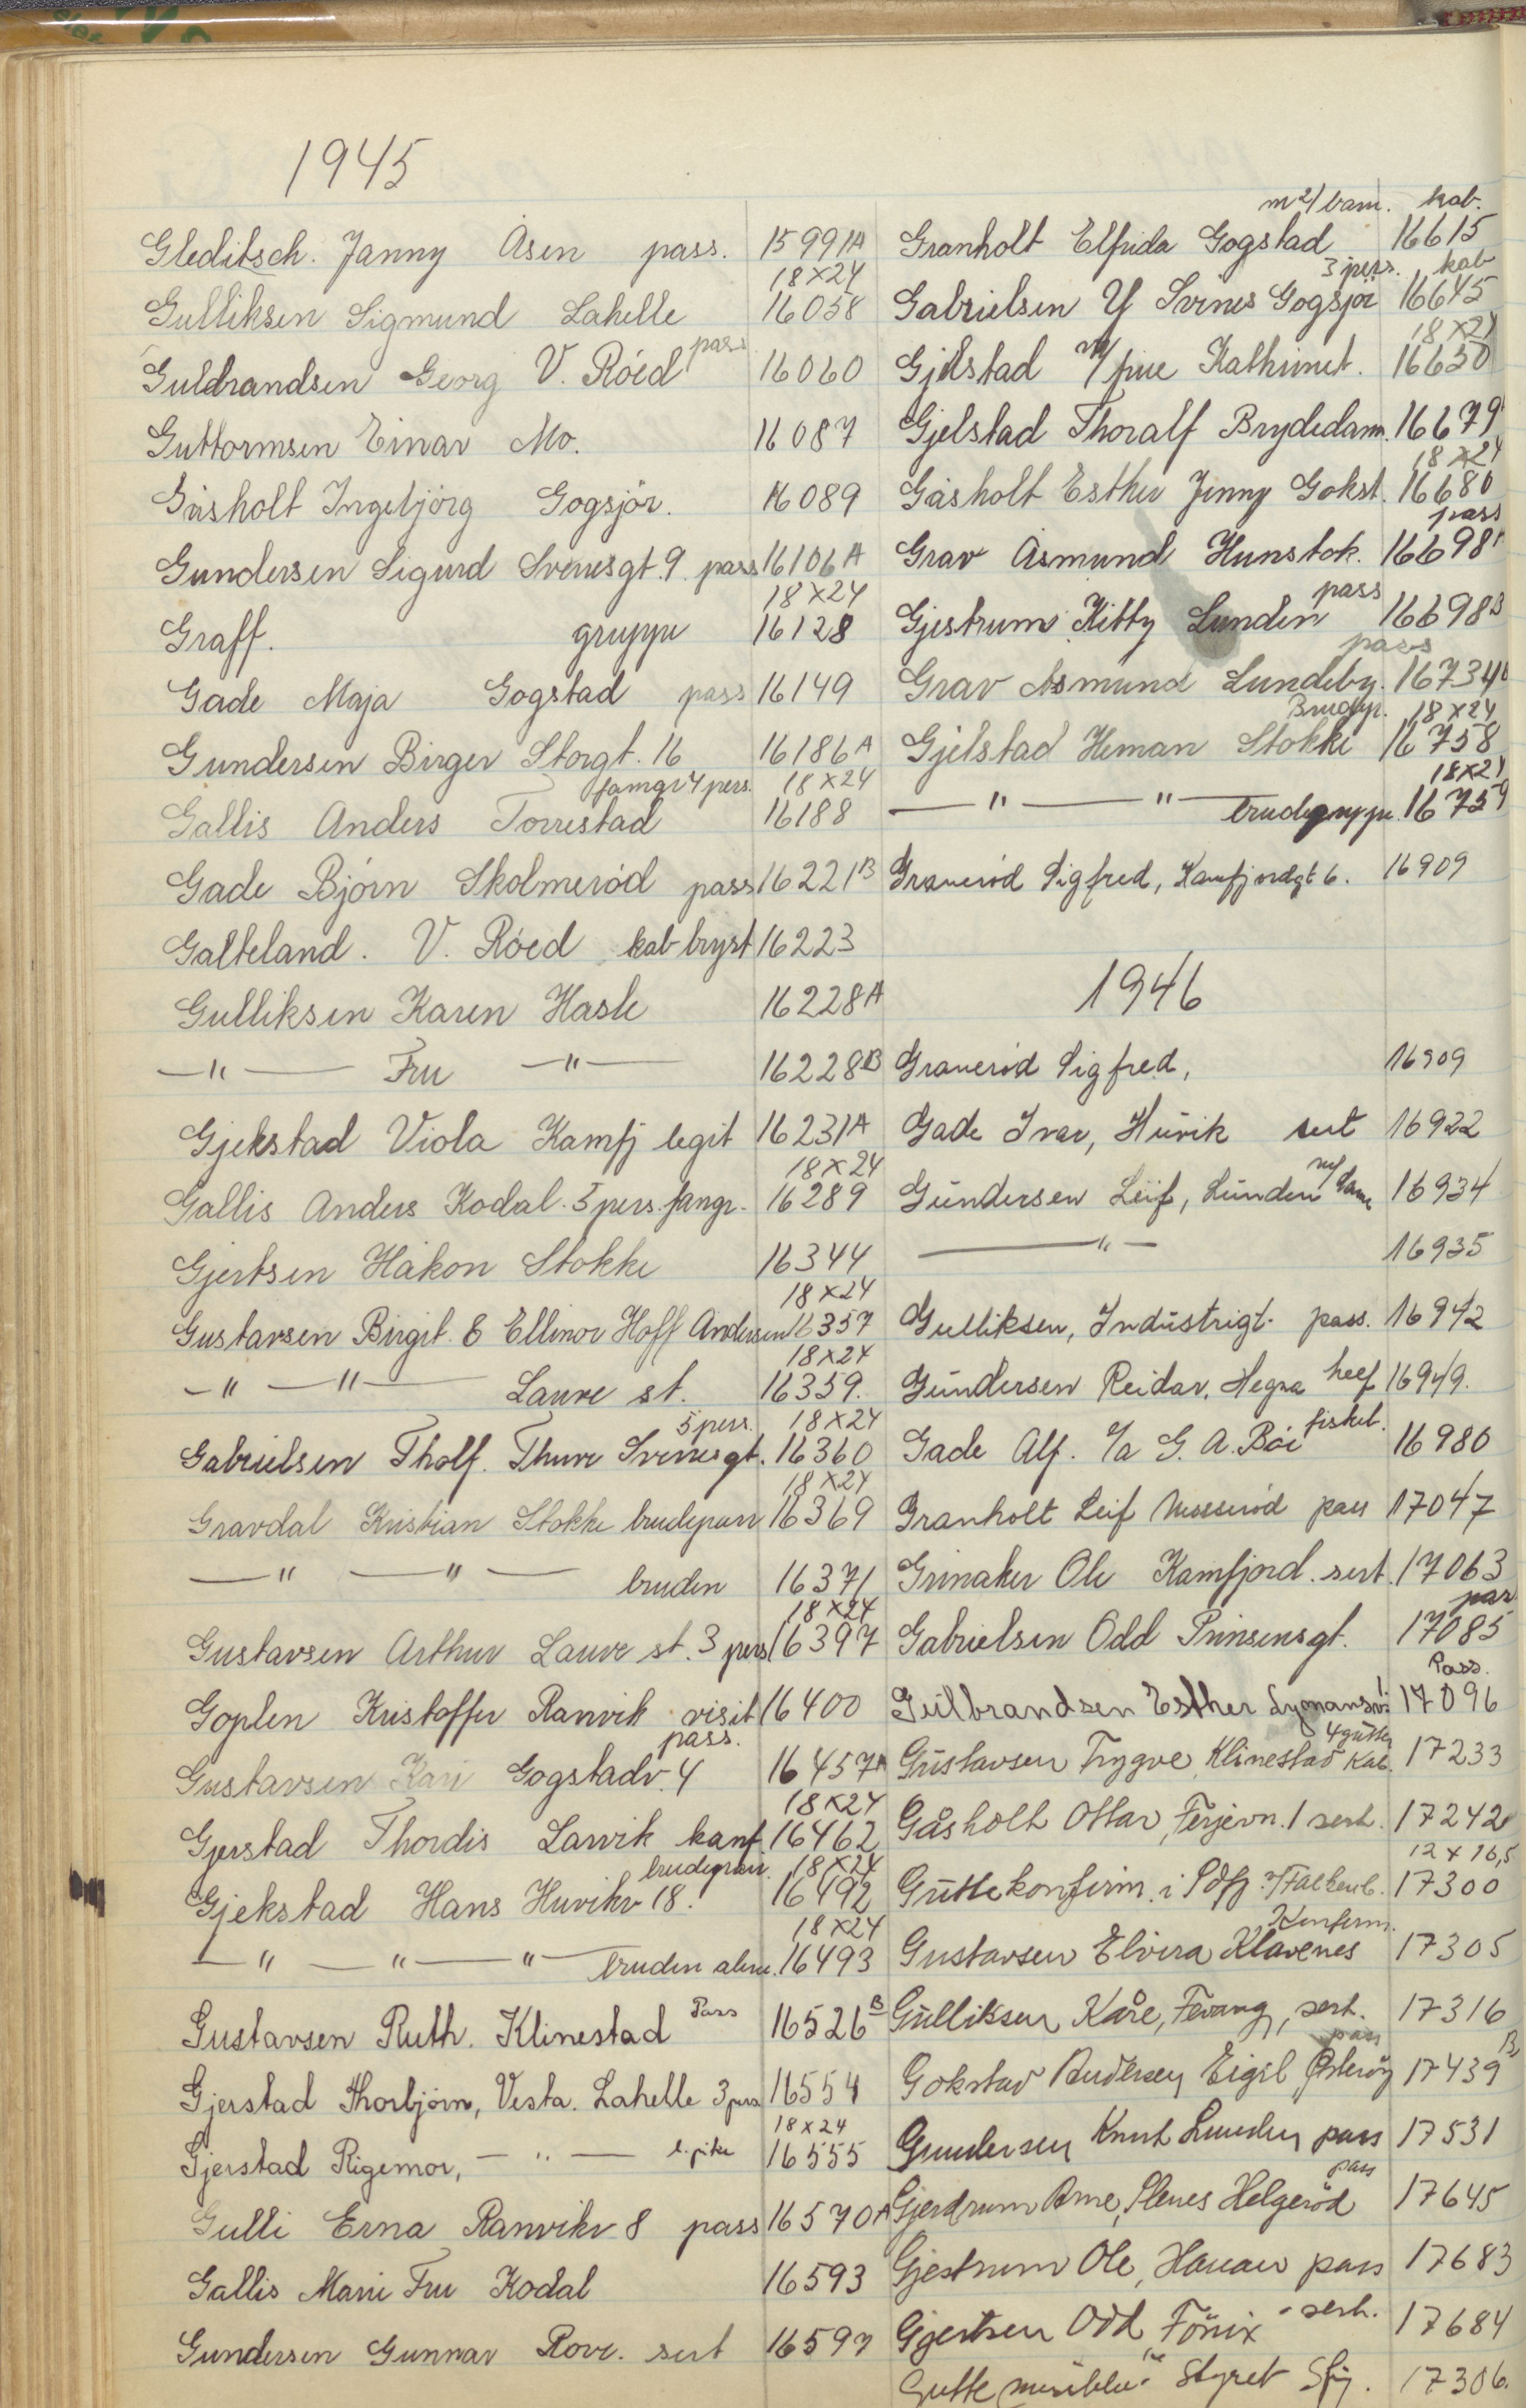 1945
Gleditsch. Janny Åsen pass. 15991A
18x24
Gulliksen Sigmund Lahelle 16058
Guldbrandsen Georg V. Röed pass 16060
Guttormsen Einar Mo. 16087
Gåsholt Ingebjörg Gogsjör. 16089
Gundersen Sigurd Svenesgt. 9 pass 16106A
18x24
Graff. gruppe 16128
Gade Maja Gogstad pass 16149
Gundersen Birger Storgt. 16 16186A
famgr 4 pers. 18x24
Gallis Anders Torrestad 16188
Gade Björn Skolmeröd pass 16221B
Galteland. V. Röed kab bryst 16223
Gulliksen Karen Hasle 16228A
—"— Fru —"— 16228B
Gjekstad Viola Kamfj legit 16231A
18x24
Gallis Anders Kodal. 5 pers. famgr. 16289
Gjertsen Håkon Stokke 16344
18x24
Gustavsen Birgit. & Ellinor Hoff Andersen 16357
18x24
—"—"— Lauve st. 16359.
5 pers. 18x24
Gabrielsen Tholf. Thure Svenesgt. 16360
18x24
Gravdal Kristian Stokke brudepar 16369
—"—"— bruden 16371
18x24
Gustavsen Arthur Lauve st. 3 pers 16397
Goplen Kristoffer Ranvik visit 16400
pass.
Gustavsen Kari Gogstadv. 4 16457A
18x24
Gjerstad Thordis Larvik kanf 16462
18x24
Gjekstad Hans Huvikv 18. 16492
18x24
—"—"—"— bruden alene. 16493
Gustavsen Ruth. Klinestad Pass 16526B
Gjerstad Thorbjörn, Vesta. Lahelle 3 pers 16554
18x24
Gjerstad Rigemor, —"— l. pike 16555
Gulli Erna Ranvikv 8 pass 16570A
Gallis Marie Fru Kodal 16593
Gundersen Gunnar Rove. sert 16597
m 2/ barn. kab.
Granholt Elfrida Gogstad 16615
3 pers. kab
Gabrielsen Y Svines Gogsjör 16645
18x24
Gjelstad m/ frue Kathrinet. 16650
Gjelstad Thoralf Brydedam. 16679
18x24
Gåsholt Esther Jenny Gokst. 16680
pass
Grav Åsmund Hunstok. 16698A
pass
Gjestrum Kitty Lunden 16698B
pass
Grav Åsmund Lundeby. 16734
18x24
Gjelstad Herman Stokke 16758
18x24
—"—"— brudegruppe 16759
Graneröd Sigfred, Kamfjordgt 6. 16909
1946
Graneröd Sigfred, 16909
Gade Ivar, Huvik sert 16922
Gundersen Leif, Lunden m/ dame 16934
—"— 16935
Gulliksen, Industrigt. pass. 16942
Gundersen Reidar, Hegna heef 16949.
Gade Alf. c/a G. A. Böe fiskeb. 16980
Granholt Leif Nesseröd pass 17047
Grinaker Ole Kamfjord. sert. 17063
pass
Gabrielsen Odd Prinsensgt. 17085
Pass.
Gulbrandsen Esther 17096
4 gutter
Gustavsen Trygve, Klinestad Kab. 17233
Gåsholt Ottar, Ferjevn. 1 sert. 17242
12 x 16,5
Guttekonfirm. i Sdfj. v/Falkenb. 17300
Konfirm.
Gustavsen Elvira Klavenes 17305
Gulliksen Kåre, Fevang, sert. 17316
pass
Gokstad Andersen Eigil Österöy 17439B
Gundersen Knut Lunden pass 17531
pass
Gjerdrum Arne, Slenes Helgeröd 17645
Gjestrum Ole, Hauan pass 17683
Gjertsen Odd, Fönix - sert. 17684
Gutte Styret Sfj. 17306.